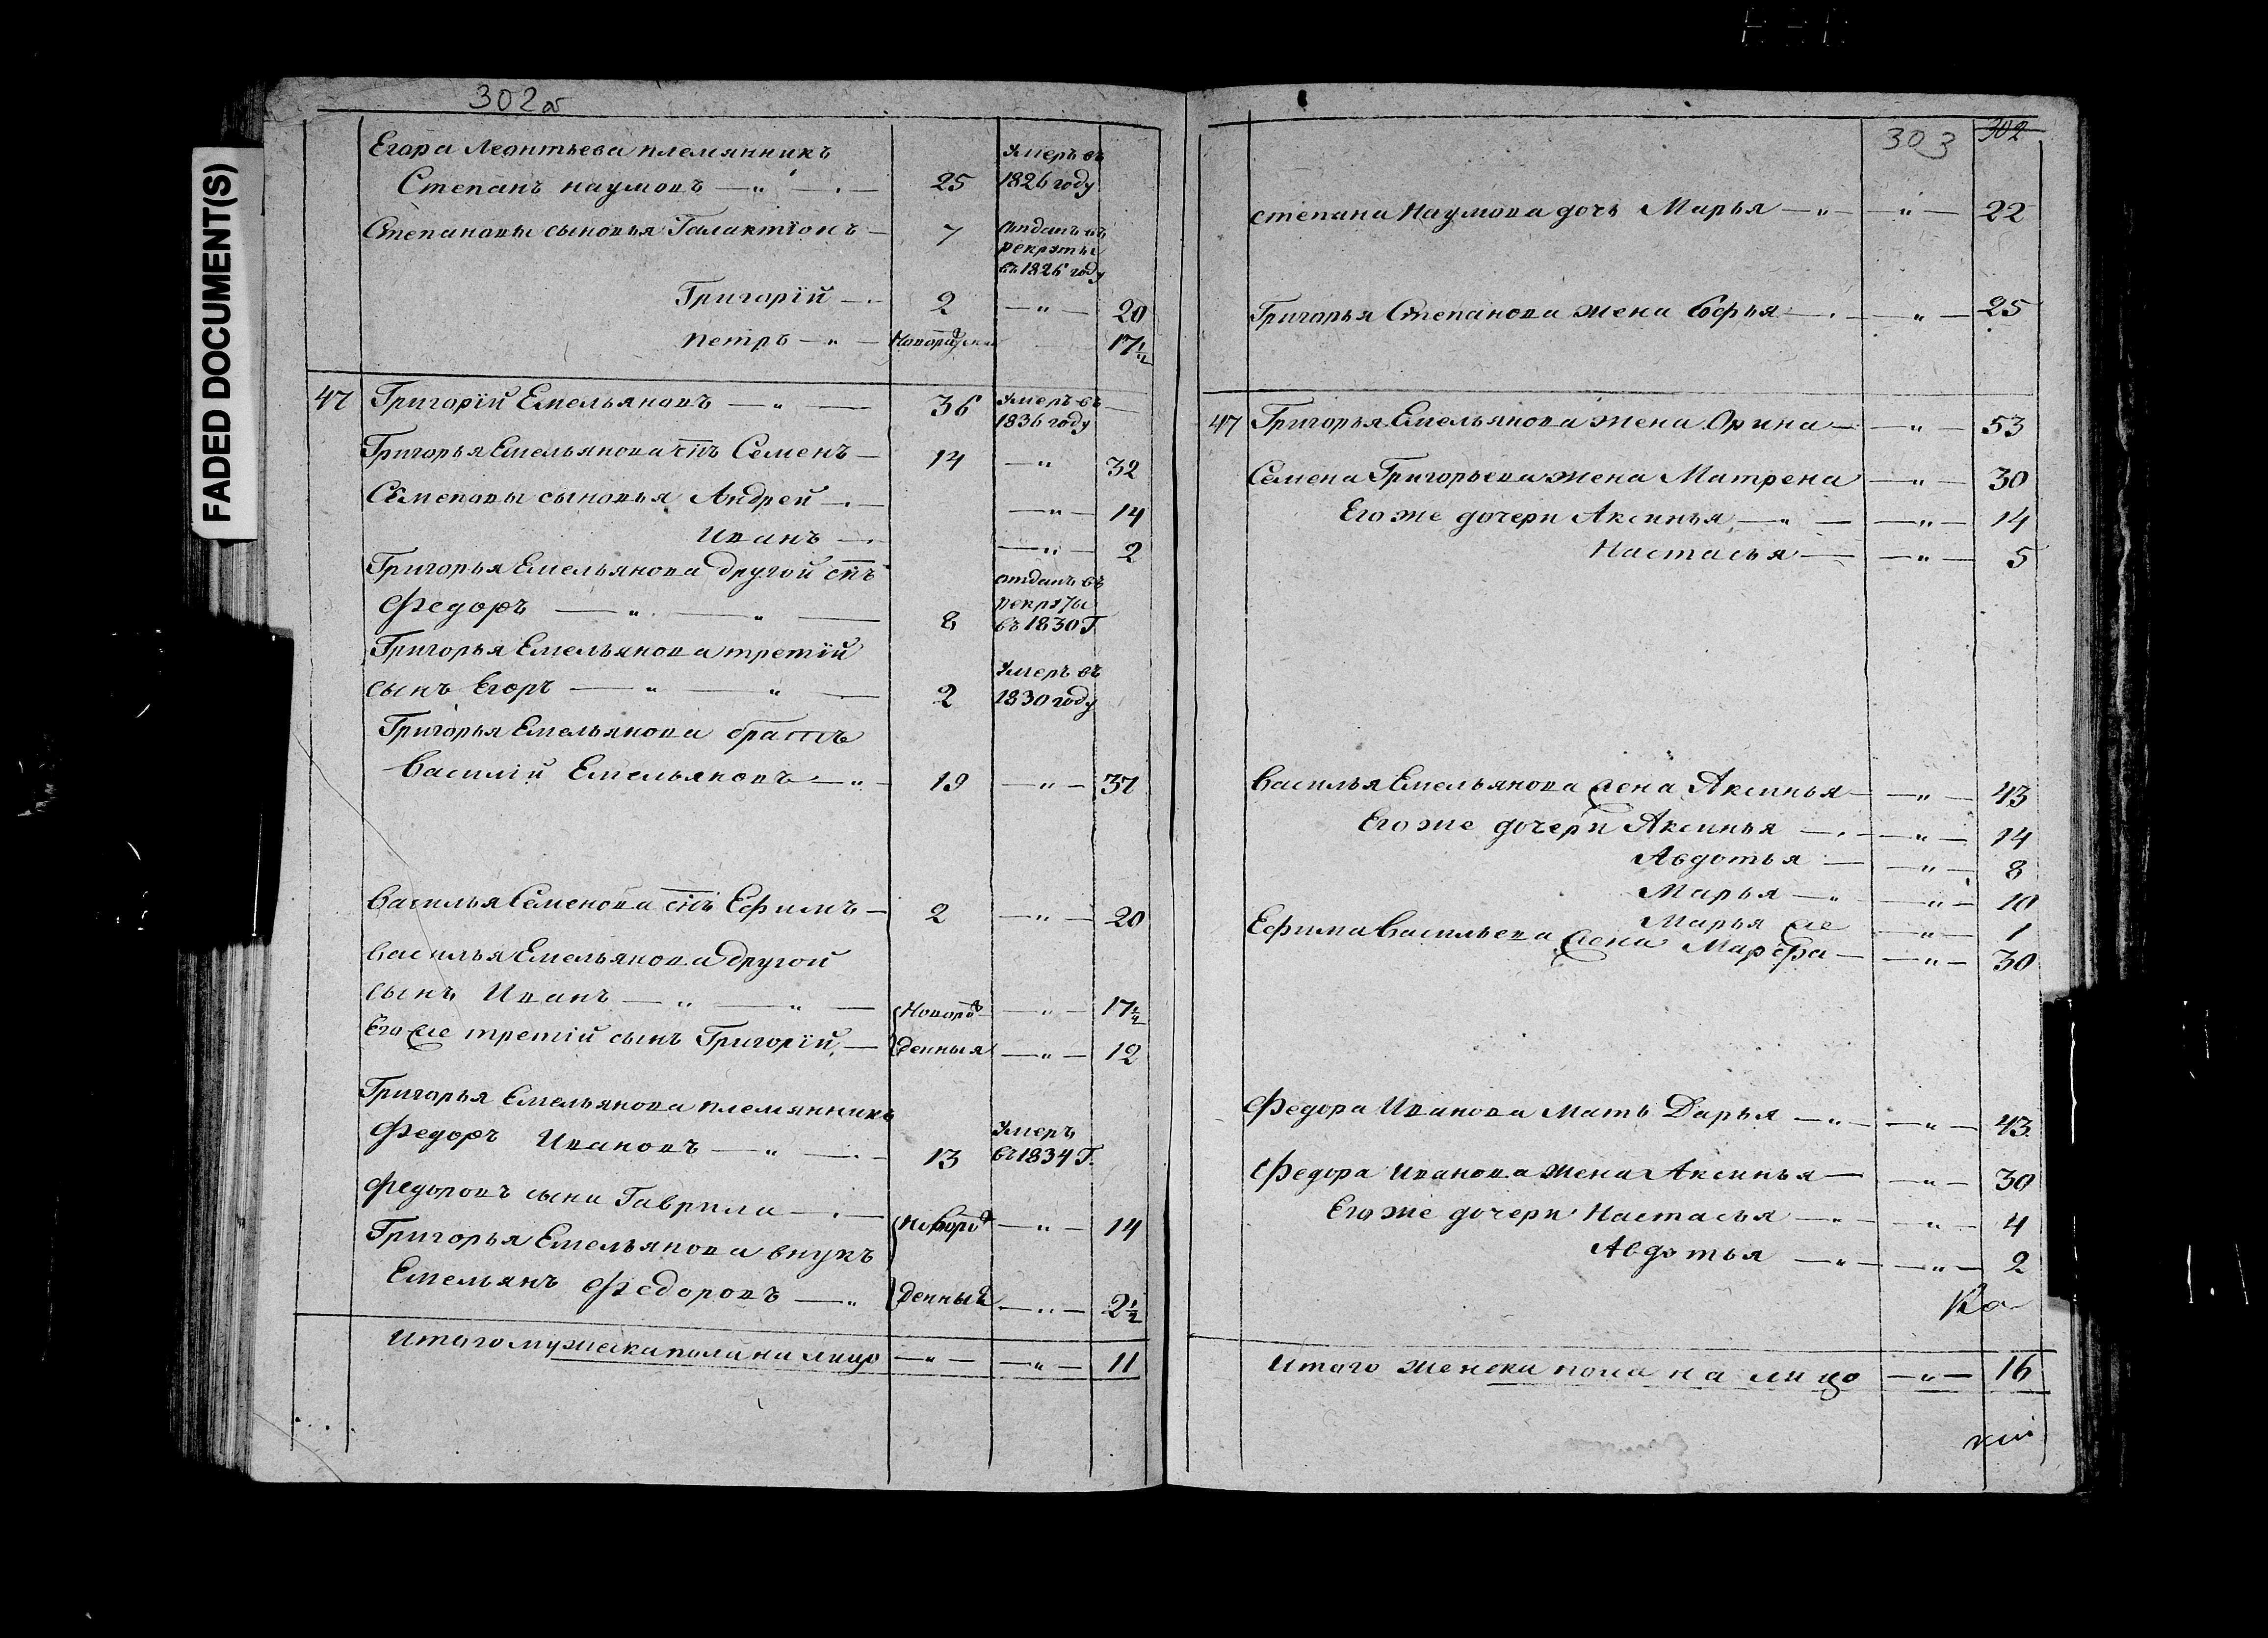 FADED DOCUMENT(S)
302 об
Егора Леонтьева племянникъ
Степанъ Наумовъ — 25 Умеръ въ 1826 году
Степановы сыновья Галактіонъ — 7 отданъ въ рекруты въ 1826 году
Григорій — 2 — " — 20
Петръ — " — 17½
47 Григорій Емельяновъ — " — 36 Умеръ въ 1836 году
Григорья Емельянова снъ Семенъ — 14 — " 32
Семеновы сыновья Андрей — — " — 14
Иванъ — — " — 2
Григорья Емельянова другой снъ
Федоръ — " — " — 8 отданъ въ рекруты въ 1830 Г.
Григорья Емельянова третій
сынъ Егоръ — " — " — 2 Умеръ въ 1830 году
Григорья Емельянова братъ
Василій Емельяновъ — " — 19 — " — 37
Василья Семенова снъ Ефимъ — 2 — " — 20
Василья Емельянова другой
сынъ Иванъ — " — " — Новорож — " — 17½
Его же третій сынъ Григорій — денныя — " — 12
Григорья Емельянова племянникъ
Федоръ Ивановъ — " — 13 Умеръ въ 1834 Г.
Федоровъ сынъ Гаврила — Новорож — " — 14
Григорья Емельянова внукъ
Емельянъ Федоровъ — " денный — " — 2½
Итого мужеска пола на лицо — " — — " — 11
303 302
Степана Наумова дочь Марья — " — — " — 22
Григорья Степанова жена Софья — — " — 25
47 Григорья Емельянова жена Орина — — " — 53
Семена Григорьева жена Матрена — " — 30
Его же дочери Аксинья — " — — " — 14
Настасья — — " — 5
Василья Емельянова жена Аксинья — — " — 43
Его же дочери Аксинья — — " — 14
Авдотья — — " — 8
Марья — " — " — 10
Марья же — " — 1
Ефима Васильева жена Марфа — — " — 30
Федора Иванова Мать Дарья — " — — " — 43
Федора Иванова жена Аксинья — — " — 30
Его же дочери Настасья — " — — " — 4
Авдотья — " — — " — 2
Итого женска пола на лицо — " — 16